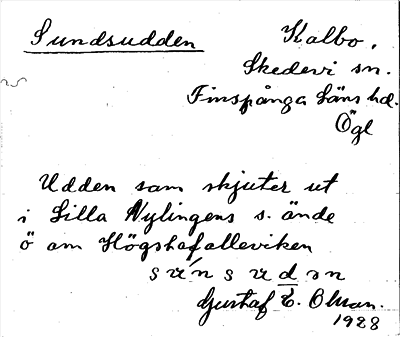 Sundsudden
Kalbo,
Skedevi sn.
Finspånga Läns hd.
Ögl
Udden som skjuter ut
i Lilla Nylingens s. ände
ö om Högshafalleviken
Gustaf E. Olsson.
1928